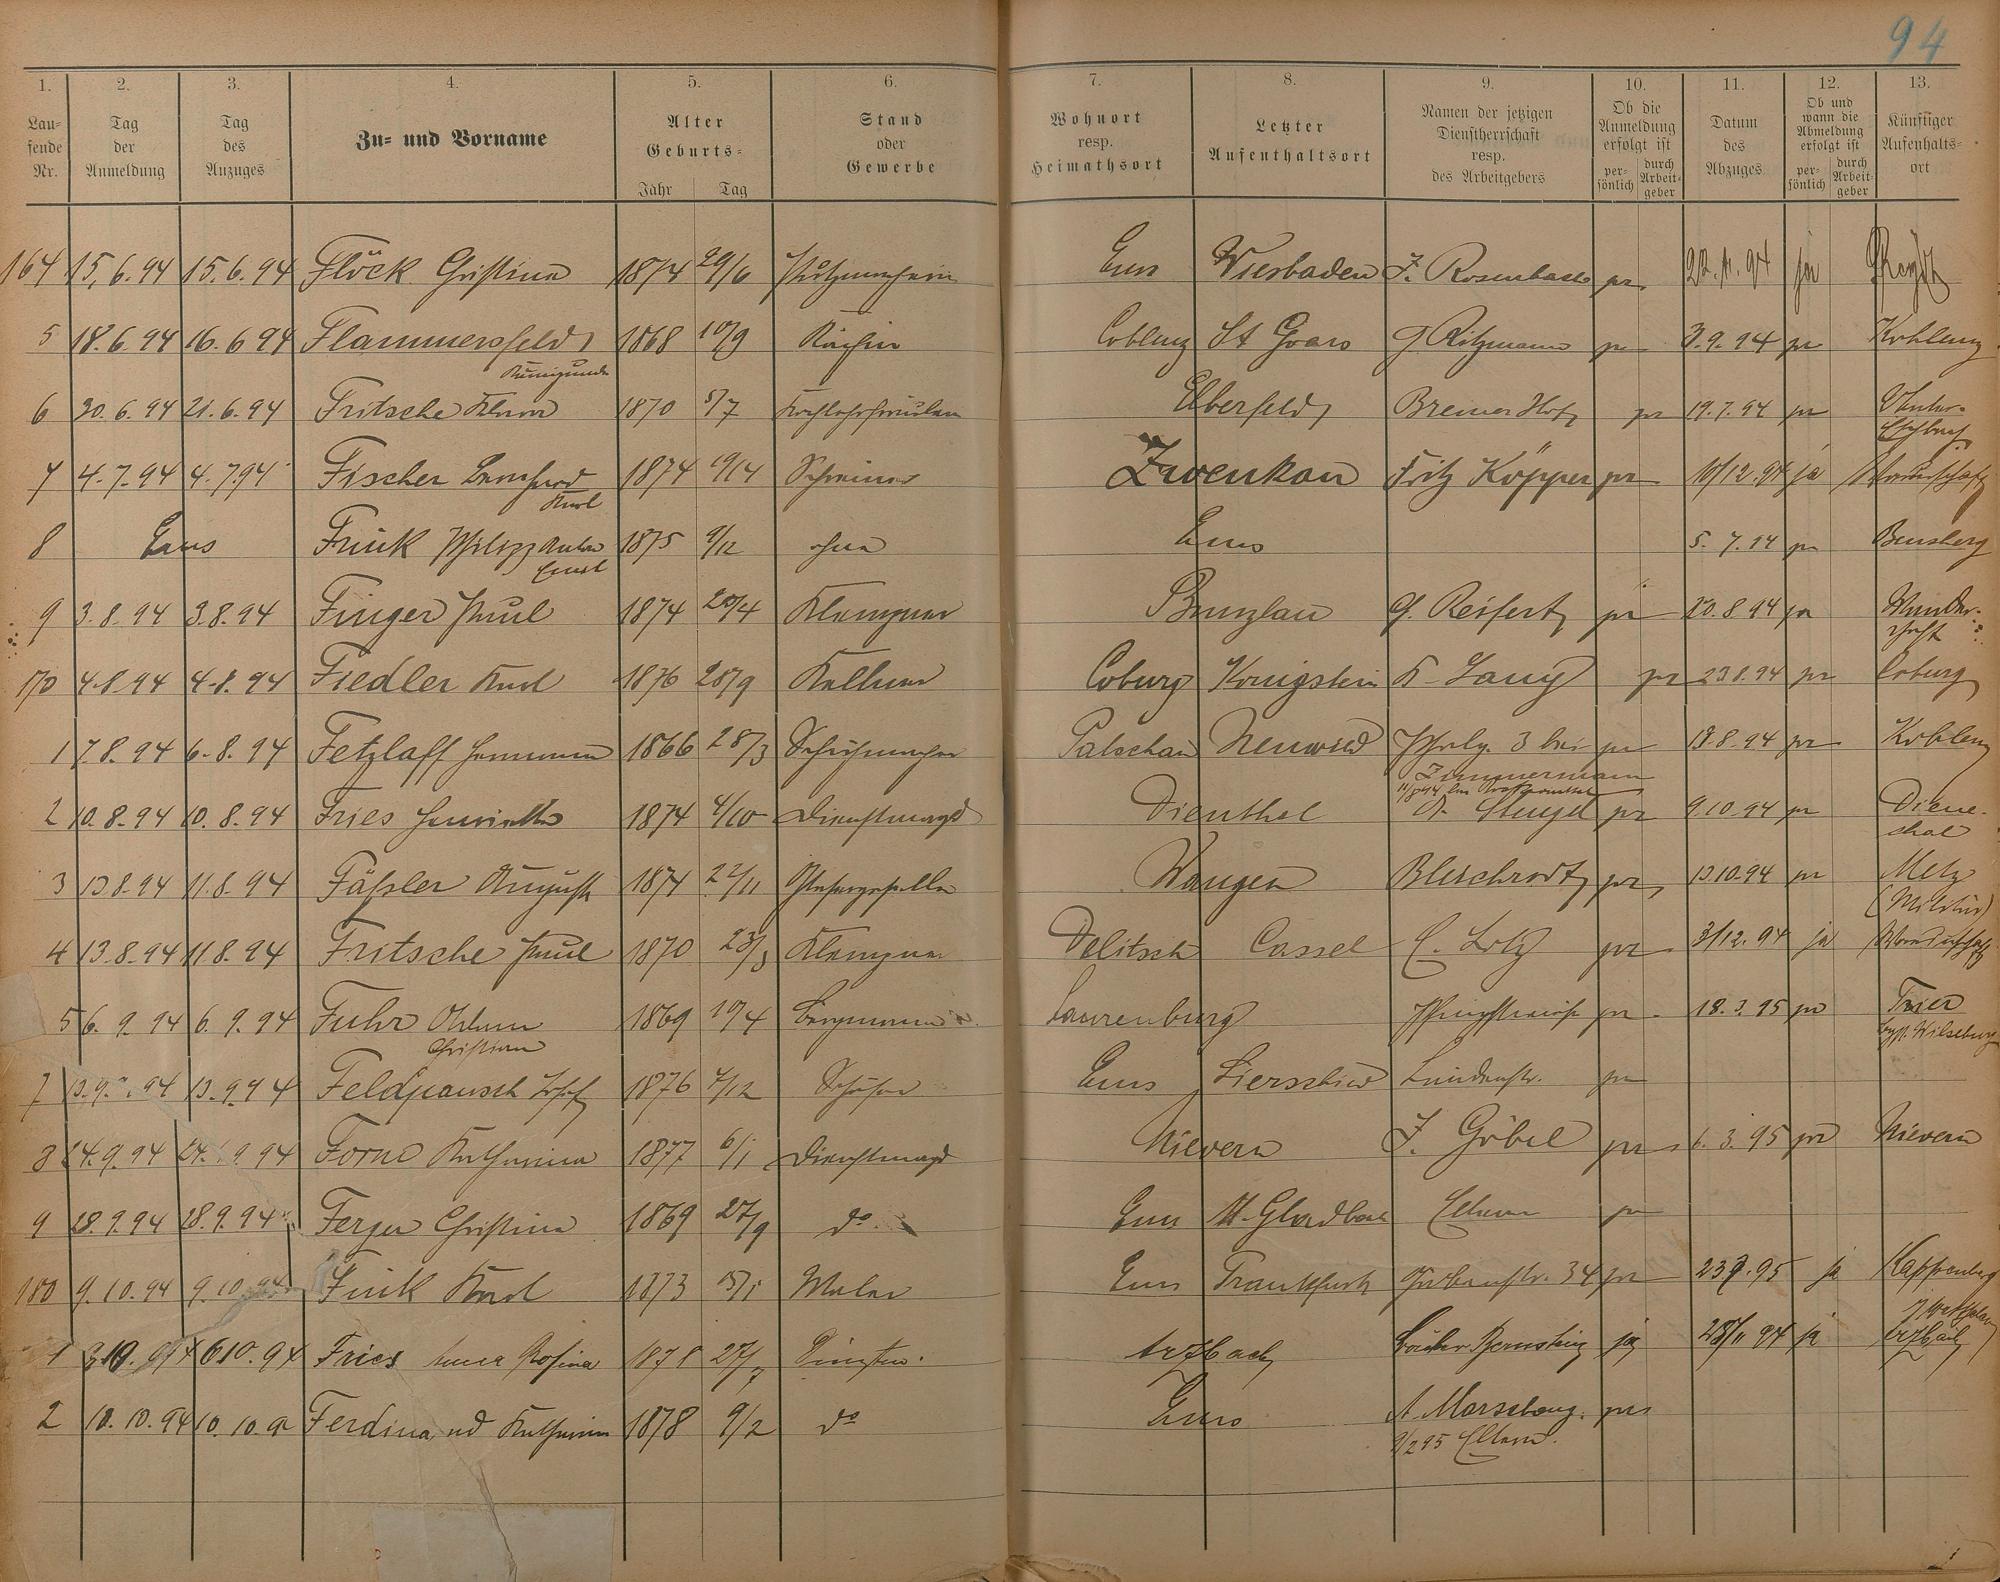 94
1. 2. 3. 4. 5. 6. 7. 8. 9. 10. 11. 12. 13.
Lau-fende Nr. Tag der Anmeldung Tag des Anzuges Zu- und Vorname Alter Geburts- Jahr Tag Stand oder Gewerbe Wohnort resp. Heimathsort Letzter Aufenthaltsort Namen der jetzigen Dienstherrschaft resp. des Arbeitgebers Ob die Anmeldung erfolgt ist per-sönlich durch Arbeit-geber Datum des Abzuges Ob und wann die Abmeldung erfolgt ist per-sönlich durch Arbeit-geber Künftiger Aufenthalts-ort
164 15.6.94 15.6.94 Flöck Christina 1874 29/6 Putzmacherin Ems Wiesbaden J. Rosenbach pr 22.11.94 ja
5 18.6.94 16.6 94 Flammersfeld 1868 10/9 Köchin Coblenz St Goars G. Ritzmann pr 3.9.94 pr Koblenz
Kunigunde
6 20.6.94 21.6.94 Fritsche Klara 1870 5/7 Kochlehrfräulein Elberfeld Bremer Hof pr 19.7.94 pr
7 4.7.94 4.7.94 Fischer Bernhard 1874 19/4 Schreiner Zwenkau Fritz Köpper pr 10/12.94 ja Wanderschaft
Karl
8 Ems Frink Philipp Anton 1875 9/12 ohne Ems 5.7.94 pr Bensberg
Ernst
9 3.8.94 3.8.94 Finger Paul 1874 20/4 Klempner Bunzlau G. Reifert pr 20.8.94 pr Wander-
schaft
170 4.8.94 4.8.94 Fiedler Karl 1876 28/9 Kellner Coburg Königstein K. Lang pr 23.8.94 pr Coburg
1 7.8.94 6.8.94 Fetzlaff Hermann 1866 28/3 Schuhmacher Palschau Neuwied 3 bei pr 13.8.94 pr Koblenz
Zimmermann
2 10.8.94 10.8.94 Fries Henriette 1874 4/10 Dienstmagd Dienthal A. Stengel pr 9.10.94 pr Diene-
thal
3 13.8.94 11.8.94 Fäßler August 1874 22/11 Glasergeselle Wangen Bleschrodt pr 13.10.94 pr Metz
(Militär)
4 13.8.94 11.8.94 Fritsche Paul 1870 23/3 Klempner Delitsch Cassel C. Lotz pr 3/12.94 ja Wanderschaft
5 6.9.94 6.9.94 Fuhr 1869 10/4 Bergmann Laurenburg pr 18.3.95 pr Trier
Christian
7 13.9.94 13.9.94 Feldpausch Josef 1876 7/12 Ems Lierschied Lindenstr. pr
8 24.9.94 24.9.94 Forne Katharina 1877 6/1 Dienstmagd Nievern J. Göbel pr 6.3.95 pr Nievern
9 28.9.94 28.9.94 Ferger Christina 1869 27/9 do Ems M-Gladbach Eltern pr
180 9.10.94 9.10.94 Fink Karl 1873 15/1 Maler Ems Frankfurt 34 pr 23.9.95 ja Kappenberg
1 6.10.94 Fries Anna Rosina 1878 27/7 Arzbach ja 28/11 94 ja Arzbach
2 10.10.94 10.10.94 Ferdinand Katharina 1878 9/2 do Ems A. Marxsberg prs
9/2 95 Eltern.